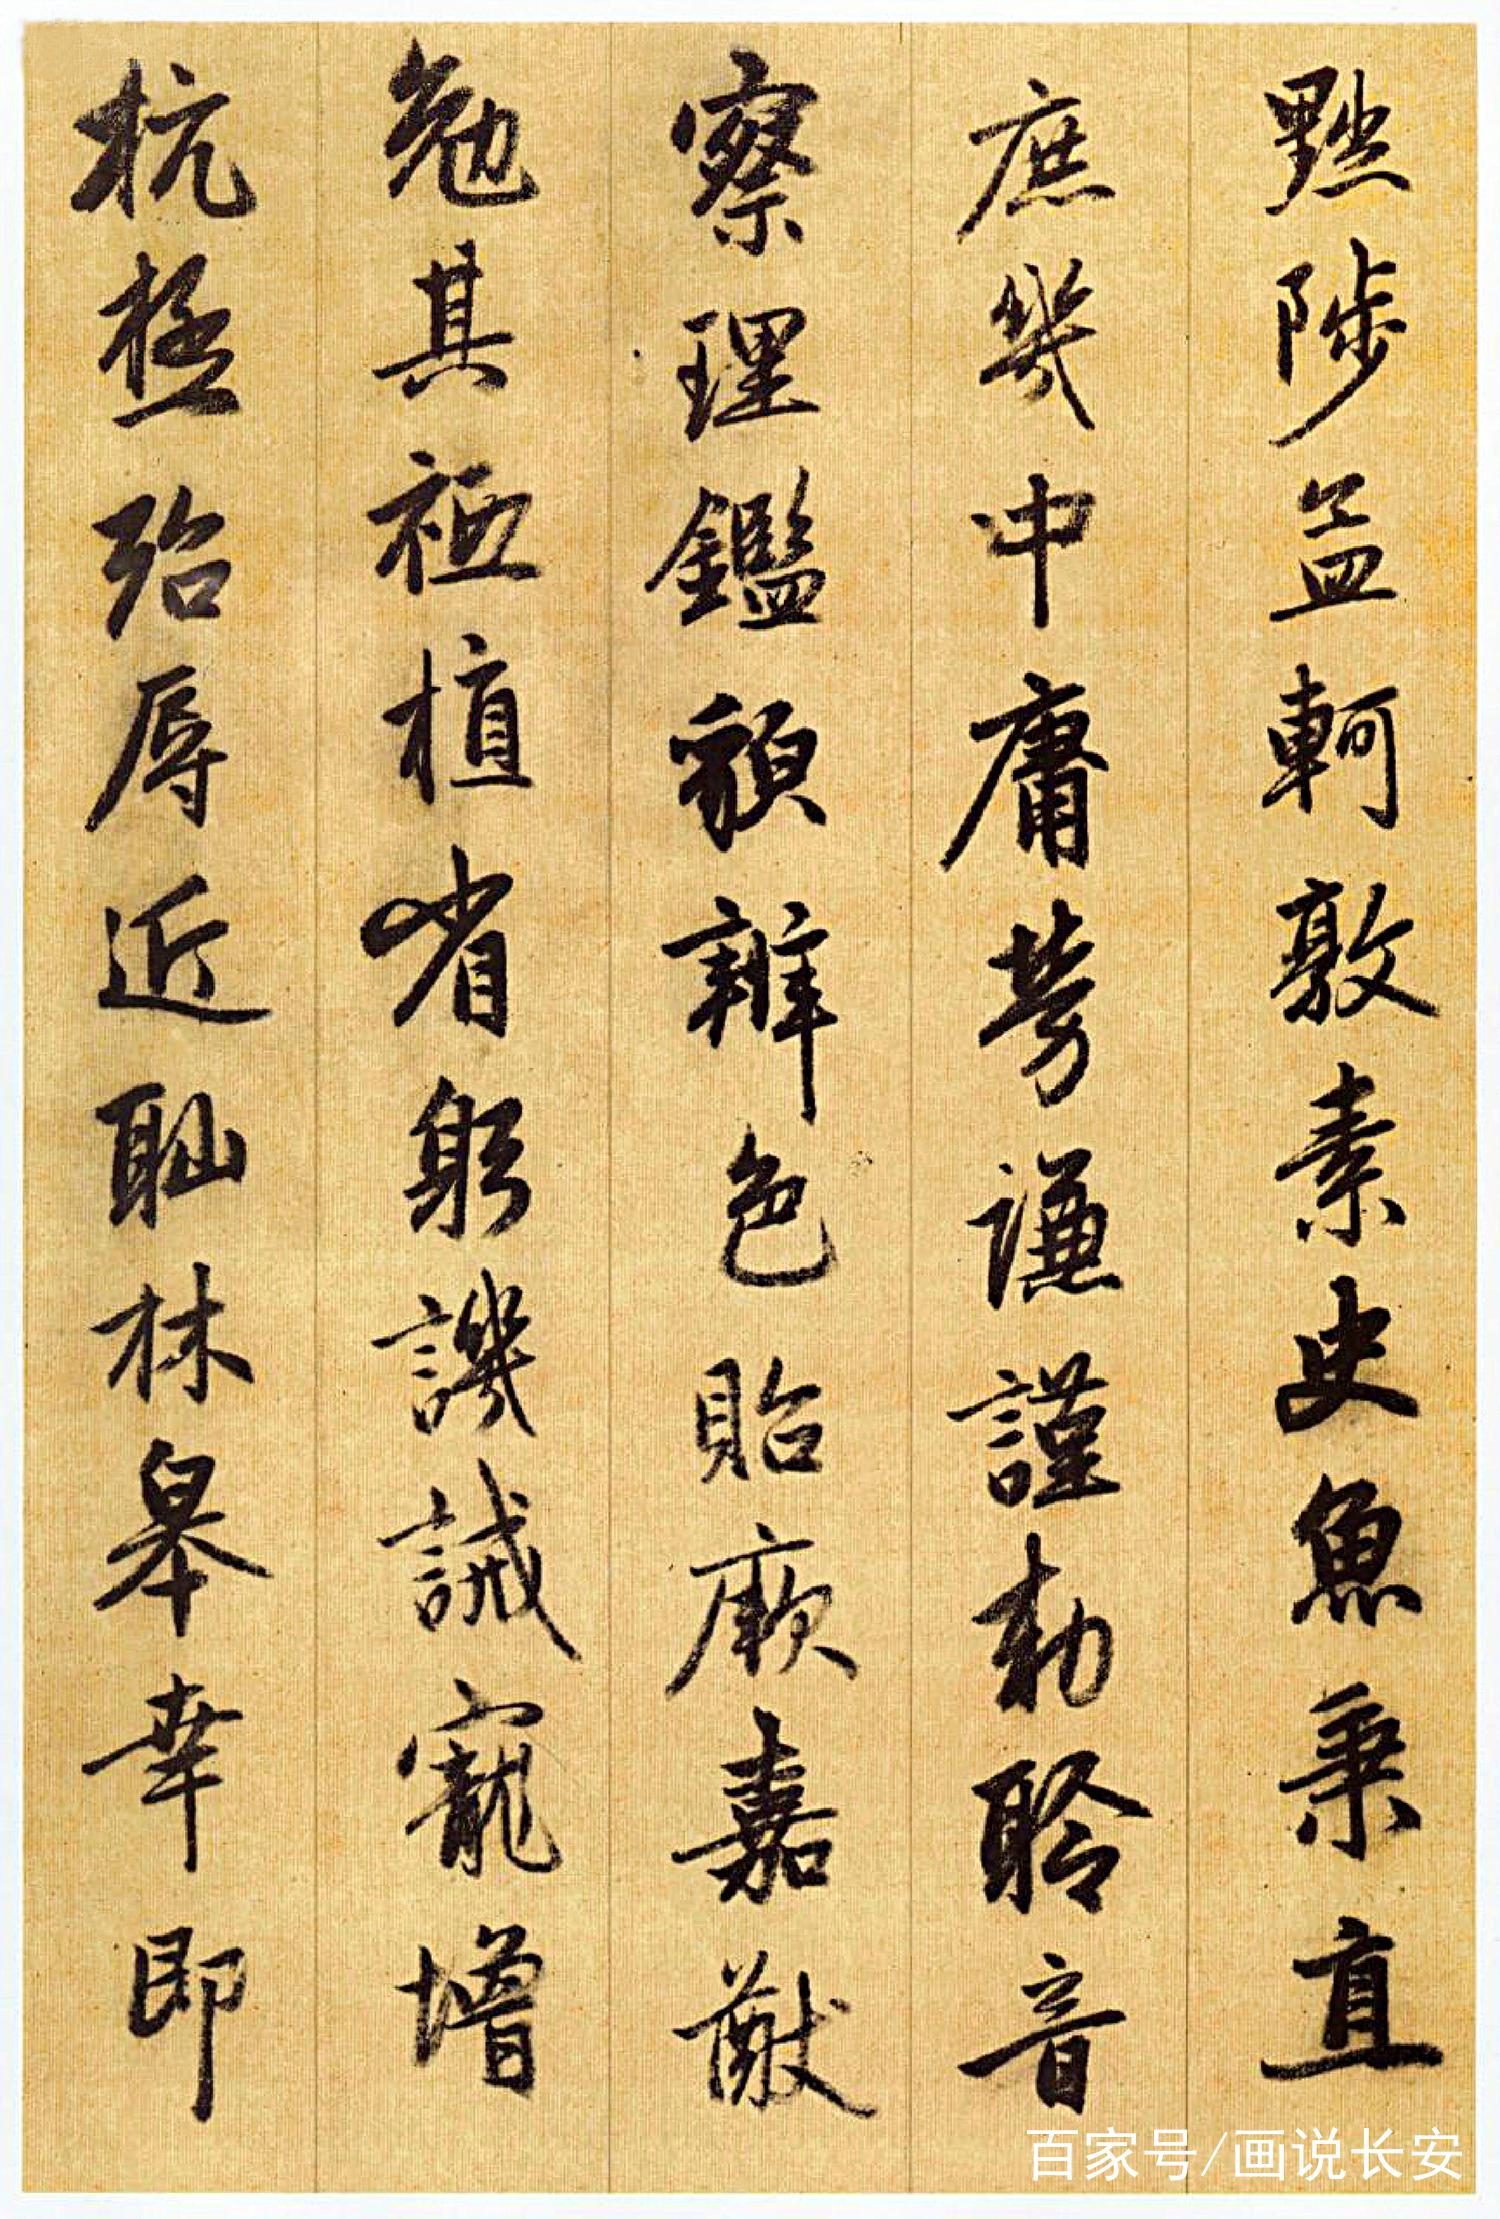 黜陟孟軻敦素史魚秉直
庶幾中庸勞謙謹勅聆音
察理鑑貌辨色貽厥嘉猷
勉其祗植省躬譏誡寵增
抗極殆辱近耻林皋幸即
百家号/画说长安